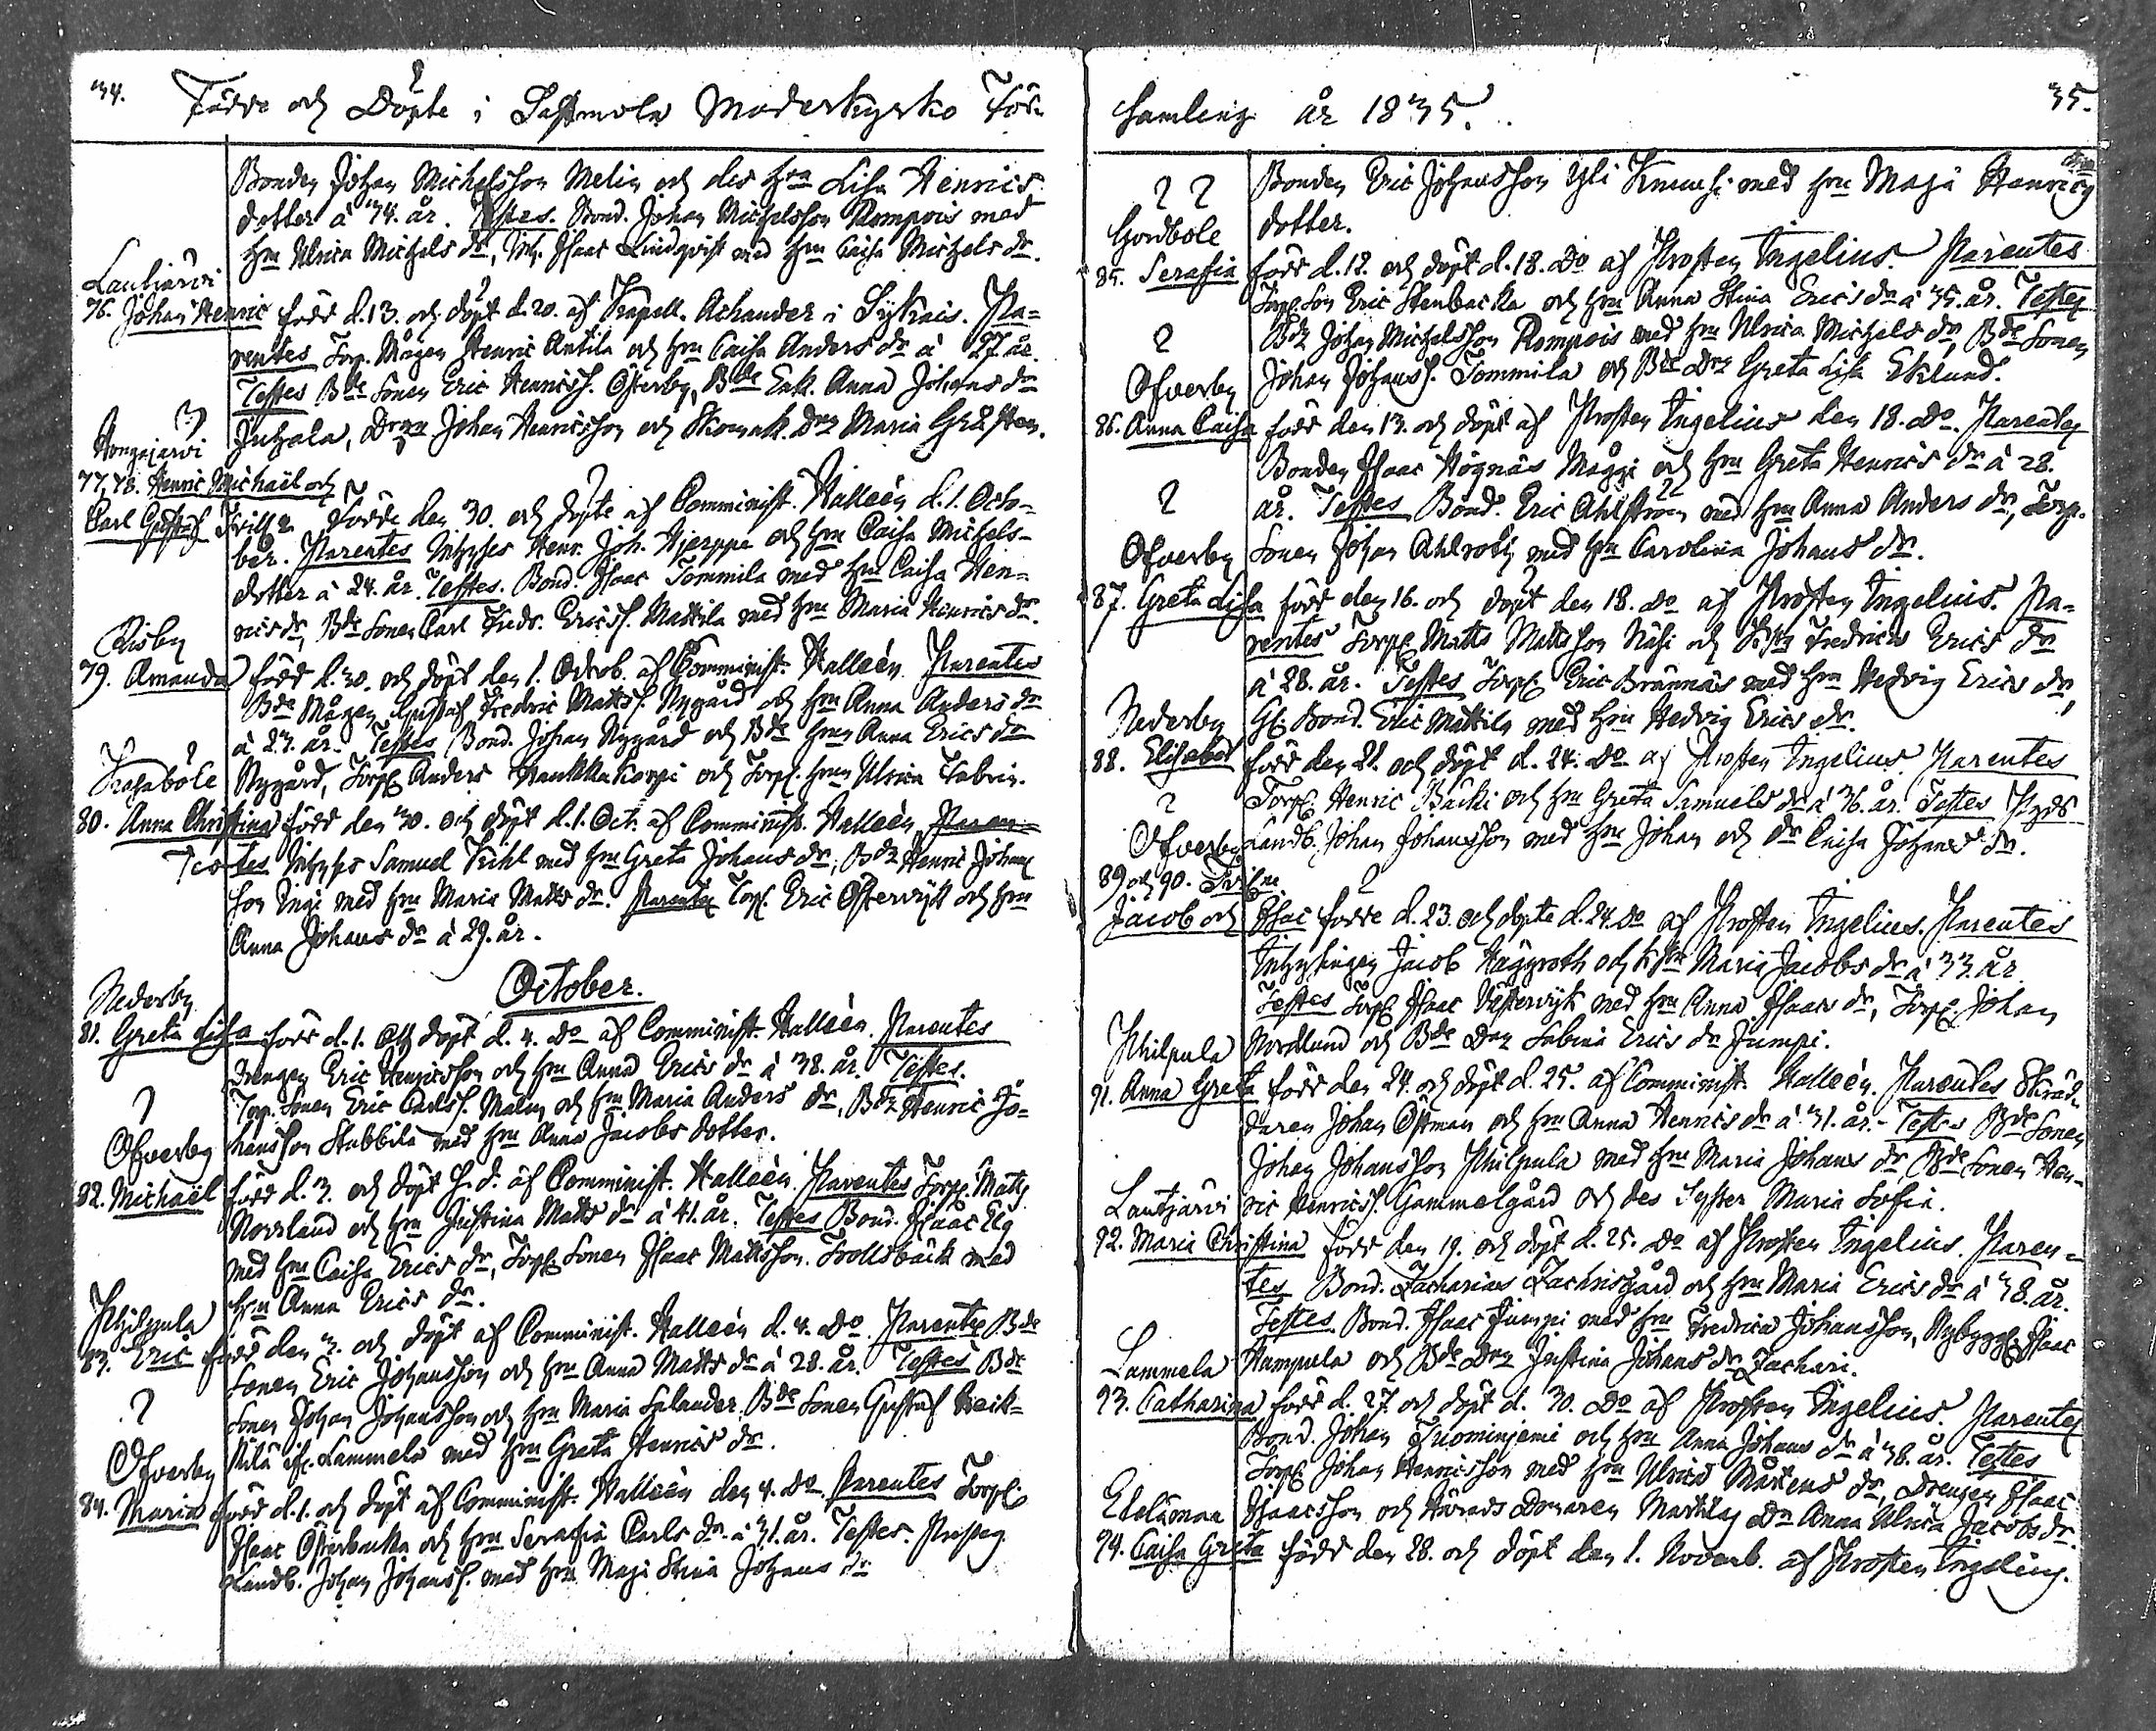 34. Födde och Döpte i Sastmola Moderkyrko För-
Bonden Johan Michelsson Melin och des Hu Lisa Henrics
dotter à 34. år. Testes. Bond. Johan Michelsson Rompois med
Hu Ulrica Michels dr, Inh. Isaac Lindqvist med Hu Caisa Michels dr.
Lautjärvi
76. Johan Henric född d. 13. och döpt d. 20. af Kapell. Achander i Sykais. Pa-
rentes Torp. Mågen Henric Antila och Hu Caisa Anders dr à 27. år.
Testes Bde Sonen Eric Henricss. Österby, Bde Enk. Anna Johans dr
Juhola, Johan Henricsson och Skomak. dr Maria Grästen.
Hongajärvi
77, 78. Henric Michaël och
Carl Gustaf Tvill. födde den 30. och döpte af Comminist. Halleén d. 1. Octo-
ber. Parentes Inhyses Henr. Joh. Hjerppe och Hu Caisa Michels-
dotter à 24. år. Testes. Bond. Isaac Tommila med Hu Caisa Hen-
rics dr, Bde Sonen Carl Fredr. Ericss. Mattila med Hu Maria Henrics dr.
Risby
79. Amanda född d. 30. och döpt den 1. Octob. af Comminist. Halleén Parentes
Bde Mågen Gustaf Fredric Mattss. Nygård och Hu Anna Anders dr
à 23. år. Testes Bond. Johan Nygård och Bde Hu Anna Erics dr
Nygård, Torp. Anders Haukkakorpi och Torp. Hu Ulrica Tabrin.
Trasaböle
80. Anna Christina född den 30. och döpt d. 1. Oct. af Comminist. Halleén Paren-
Testes Inhyses Samuel Kihl med Hu Greta Johans dr, Bde Henric Johans
son Ingi med Hu Maria Matts dr. Parentes Torp. Eric Östervik och Hu
Anna Johans dr à 29. år.
October.
Nederby
81. Greta Lisa född d. 1. och döpt d. 4. do af Comminist. Halleén. Parentes
Drengen Eric Henricsson och Hu Anna Erics dr à 38. år. Testes.
Torp. Sonen Eric Carlss. Malin och Hu Maria Anders dr, Bde Henric Jo-
hansson Stubbila med Hu Anna Jacobs dotter.
Ofverby
82. Michaël född d. 3. och döpt s. d. af Comminist. Halleén. Parentes Torp. Matts
Norrland och Hu Justina Matts dr à 41. år. Testes Bond. Isaac Elg
med Hu Caisa Erics dr, Torp. Sonen Isaac Mattsson Trollsback med
Hu Anna Erics dr.
Philpula
83. Eric född den 3. och döpt af Comminist. Halleén d. 4. do Parentes Bde
Sonen Eric Johansson och Hu Anna Matts dr à 28. år. Testes Bde
Sonen Johan Johansson och Hu Maria Salander, Bde Sonen Gustaf
Lammela med Hu Greta Henrics dr.
Ofverby
84. Maria född d. 1. och döpt af Comminist. Halleén den 4. do. Parentes Torp.
Isaac Österbacka och Hu Serafia Carls dr à 31. år. Testes.
Landb. Johan Johanss. med Hu Maja Stina Johans dr
samling år 1835. 35.
Bonden Eric Johansson Yli Knuusi med Hu Maja Henrics
dotter.
Hordbole
85. Serafia född d. 12. och döpt d. 18. do af Prosten Ingelius. Parentes
Torp. Son Eric Stenbacka och Hu Anna Stina Erics dr à 35. år. Testes
Bde Johan Michelsson Rompois med Hu Ulrica Michels dr, Bde Sonen
Johan Johanss. Tommila och Bde dr Greta Lisa Eklund.
Ofverby
86. Anna Caisa född den 13. och döpt af Prosten Ingelius den 18. do. Parentes
Bonden Isaac Högnäs Måggi och Hu Greta Henrics dr à 28.
år. Testes Bond. Eric Ahlström med Hu Anna Anders dr, Torp.
Sonen Johan Ahlroth med Hu Carolina Johans dr.
Ofverby
87. Greta Lisa född den 16. och döpt den 18. do af Prosten Ingelius. Pa-
rentes Torp. Matts Mattsson Näsi och Fredrica Erics dr
à 28. år. Testes Torp. Eric Brännäs med Hu Hedvig Erics dr,
Gl. Bond. Eric Mattila med Hu Hedvig Erics dr.
Nederby
88. Elisabet född den 21. och döpt d. 24. do af Prosten Ingelius. Parentes
Torp. Henric Backi och Hu Greta Samuels dr à 36. år. Testes
Landb. Johan Johansson med Hu Johan och dr Caisa Johans dr.
Ofverby
89 och 90. Tvill.ne
Jacob och Isac födde d. 23. och döpte d. 24. do af Prosten Ingelius. Parentes
Inhysingen Jacob Häggroth och Maria Jacobs dr à 33. år
Testes Torp. Isaac Västervik med Hu Anna Isaacs dr, Torp. Johan
Nordlund och Bde dr Sabina Erics dr Jumpi.
Philpula
91. Anna Greta född den 24. och döpt d. 25. af Comminist. Halleén. Parentes Skräd-
daren Johan Östman och Hu Anna Henrics dr à 31. år. Testes Bde Sonen
Johan Johansson Philpula med Hu Maria Johans dr, Bde Sonen Hen-
ric Henricss. Gammelgård och des Syster Maria Sofia.
Lautjärvi
92. Maria Christina född den 19. och döpt d. 25. do af Prosten Ingelius. Paren-
tes Bond. Zacharias Zachrisgård och Hu Maria Erics dr à 38. år.
Testes. Bond. Isaac Jumpi med Hu Fredrica Johansson, Nybygg. Isaac
Hampula och Bde dr Justina Johans dr Zachari.
Lammela
93. Catharina född d. 27. och döpt d. 30. do af Prosten Ingelius. Parentes
Bond. Johan Tuominjemi och Hu Anna Johans dr à 38. år. Testes
Torp. Johan Henricsson med Hu Ulrica Mårtens dr, Drengen Isaac
Isaacsson och Härads Domaren Mattilas dr Anna Ulrica Jacobs dr.
Etelämaa
94. Caisa Greta född den 28. och döpt den 1. Novemb. af Prosten Ingelius.